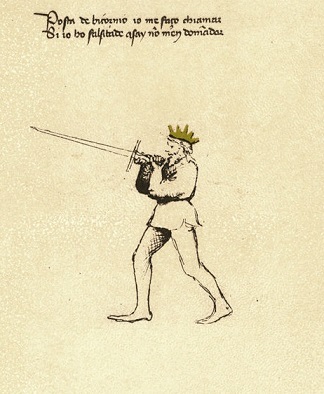 Posta de bicornio io me faço chiamar
Si io ho falsitade asay nō men domādar